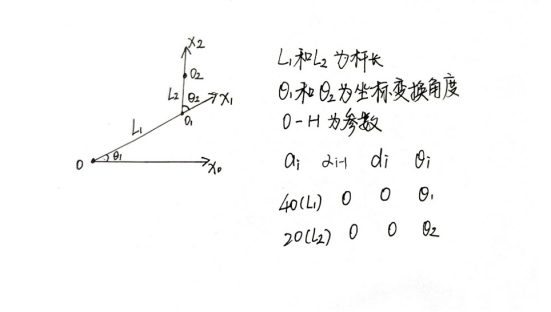 X2
O2
L2 θ2 X1
O1
L1
O θ1 X0
L1和L2 为杆长
θ1和θ2为坐标变换角度
D-H为参数
ai αi-1 di θi
40(L1) 0 0 θ1
20(L2) 0 0 θ2